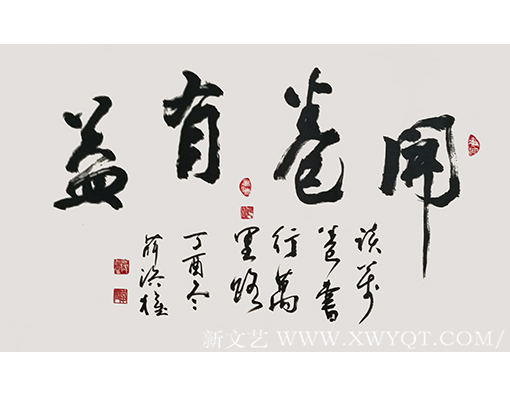 開卷有益
读萬
卷書
行萬
里路
丁酉冬
薛
新文艺 WWW.XWYQT.COM/